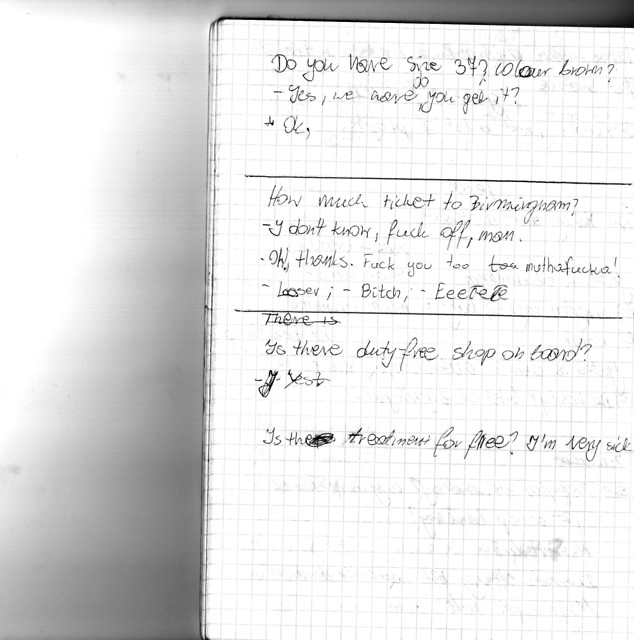 Do you have size 37? Colour brown?
- Yes, we have, do you get it?
* Ok,
How much ticket to Birmingham?
- I don't know, fuck off, man.
- Oh, thanks. Fuck you too too muthafucka!
- Looser; - Bitch; - EeeTeTe
There is
Is there duty-free shop on board?
- I Yest
Is the treatment for free? I'm very sick